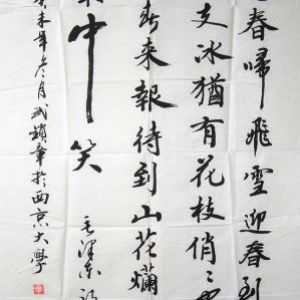 春歸飛雪迎春到
丈冰猶有花枝俏
春来報待到山花爛
中笑
毛澤东
癸未年冬月武於西京大學